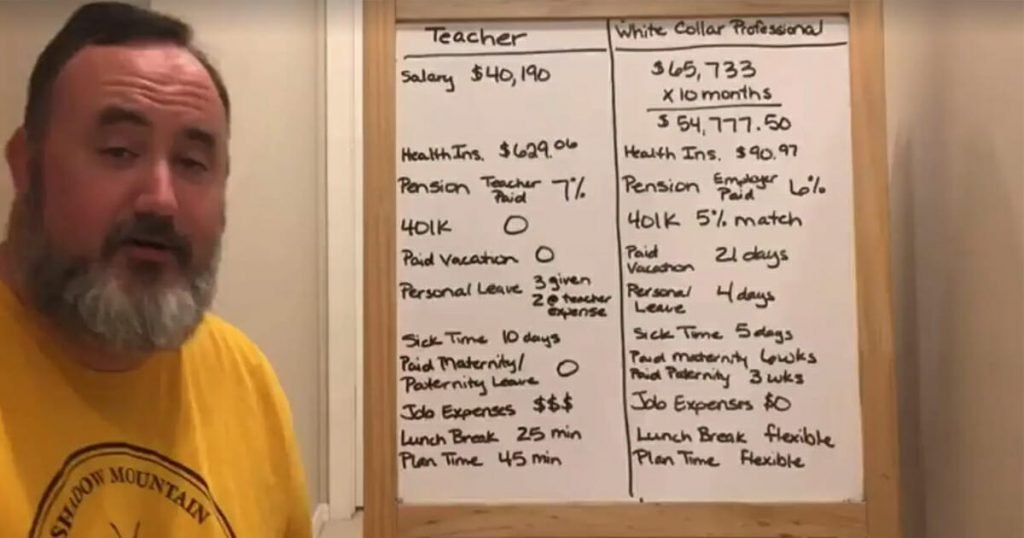 Teacher
Salary $40,190
Health Ins. $629.06
Pension Teacher Paid 7%
401K 0
Paid Vacation 0
Personal Leave 3 given
2 @ teacher
expense
Sick Time 10 days
Paid Maternity/
Paternity Leave 0
Job Expenses $$$
Lunch Break 25 min
Plan Time 45 min
White Collar Professional
$65,733
x 10 months
$54,777.50
Health Ins. $90.97
Pension Employer Paid 6%
401K 5% match
Paid
Vacation 21 days
Personal
Leave 4 days
Sick Time 5 days
Paid Maternity 6wks
Paid Paternity 3 wks
Job Expenses $0
Lunch Break flexible
Plan Time flexible
SHADOW MOUNTAIN